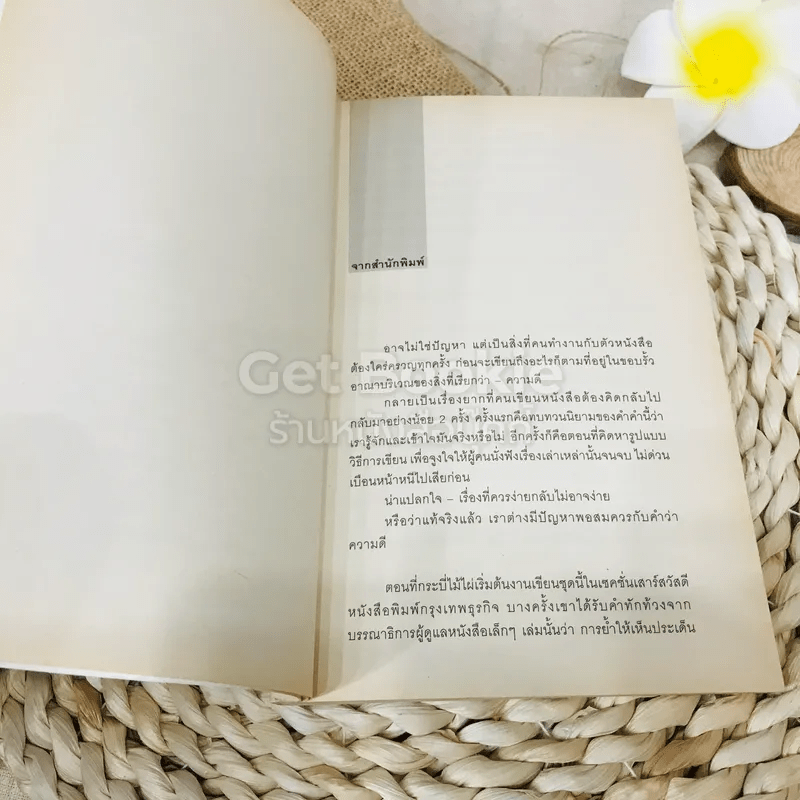 จากสำนักพิมพ์
อาจไม่ใช่ปัญหา แต่เป็นสิ่งที่คนทำงานกับตัวหนังสือ
ต้องใคร่ครวญทุกครั้ง ก่อนจะเขียนถึงอะไรก็ตามที่อยู่ในขอบรั้ว
อาณาบริเวณของสิ่งที่เรียกว่า ความดี
กลายเป็นเรื่องยากที่คนเขียนหนังสือต้องคิดกลับไป
กลับมาอย่างน้อย 2 ครั้ง ครั้งแรกคือทบทวนนิยามของคำคำนี้ว่า
เรารู้จักและเข้าใจมันจริงหรือไม่ อีกครั้งก็คือตอนที่คิดหารูปแบบ
วิธีการเขียน เพื่อจูงใจให้ผู้คนนั่งฟังเรื่องเล่าเหล่านั้นจนจบ ไม่ด่วน
เบือนหน้าหนีไปเสียก่อน
น่าแปลกใจ – เรื่องที่ควรง่ายกลับไม่อาจง่าย
หรือว่าแท้จริงแล้ว เราต่างมีปัญหาพอสมควรกับคำว่า
ความดี
ตอนที่กระบี่ไม้ไผ่เริ่มต้นงานเขียนชุดนี้ในเซคชั่นเสาร์สวัสดี
หนังสือพิมพ์กรุงเทพธุรกิจ บางครั้งเขาได้รับคำทักท้วงจาก
บรรณาธิการผู้ดูแลหนังสือเล็กๆ เล่มนั้นว่า การย้ำให้เห็นประเด็น
Get Bookie